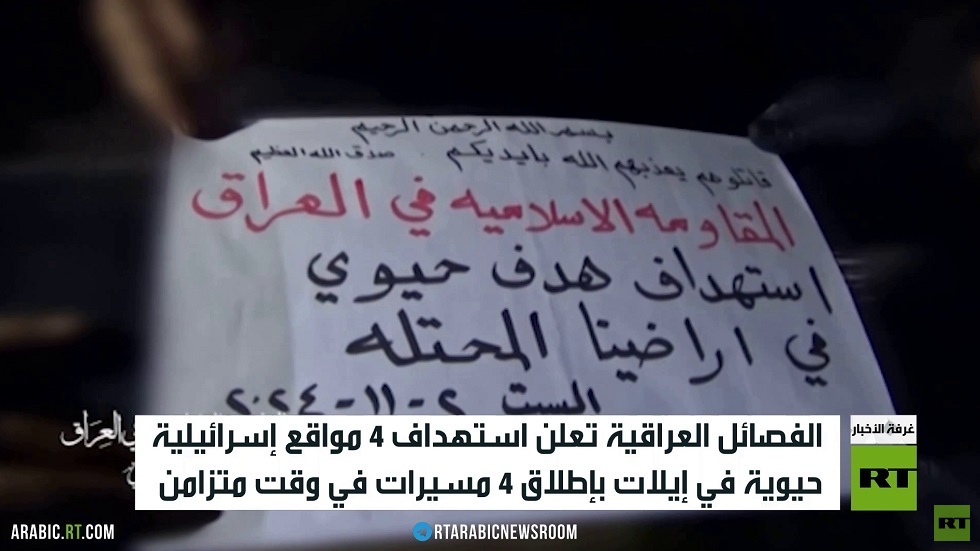 بسم الله الرحمن الرحيم
قاتلوهم يعذبهم الله بايديكم . صدق الله العظيم
المقاومه الاسلاميه في العراق
استهداف هدف حيوي
في اراضينا المحتله
السبت ٢-١١-٢٠٢٤
في العراق
غرفة الأخبار
الفصائل العراقية تعلن استهداف 4 مواقع إسرائيلية
حيوية في إيلات بإطلاق 4 مسيرات في وقت متزامن
RT
ARABIC.RT.COM
RTARABICNEWSROOM
RT